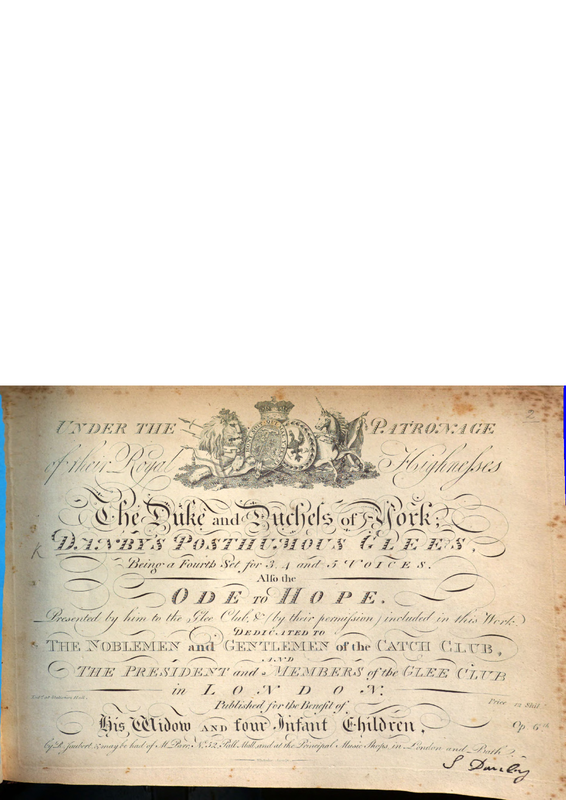 UNDER THE PATRONAGE
of their Royal Highneſses
The Duke and Ducheſs of York;
DANBY'S POSTHUMOUS GLEES,
Being a Fourth Set for 3, 4 and 5 VOICES.
Alſo the
ODE TO HOPE.
Presented by him to the Glee Club, & (by their permiſsion) included in this Work
DEDICATED TO
THE NOBLEMEN and GENTLEMEN of the CATCH CLUB,
AND
THE PRESIDENT and MEMBERS of the GLEE CLUB
in LONDON:
Ent.d at Stationers Hall.
Published for the Benefit of
Price
His Widow AND four Infant Children,
Op. 6th
& may be had of M. Parc No. 52 Pall Mall and at the Principal Music Shops, in London and Bath
S Danby